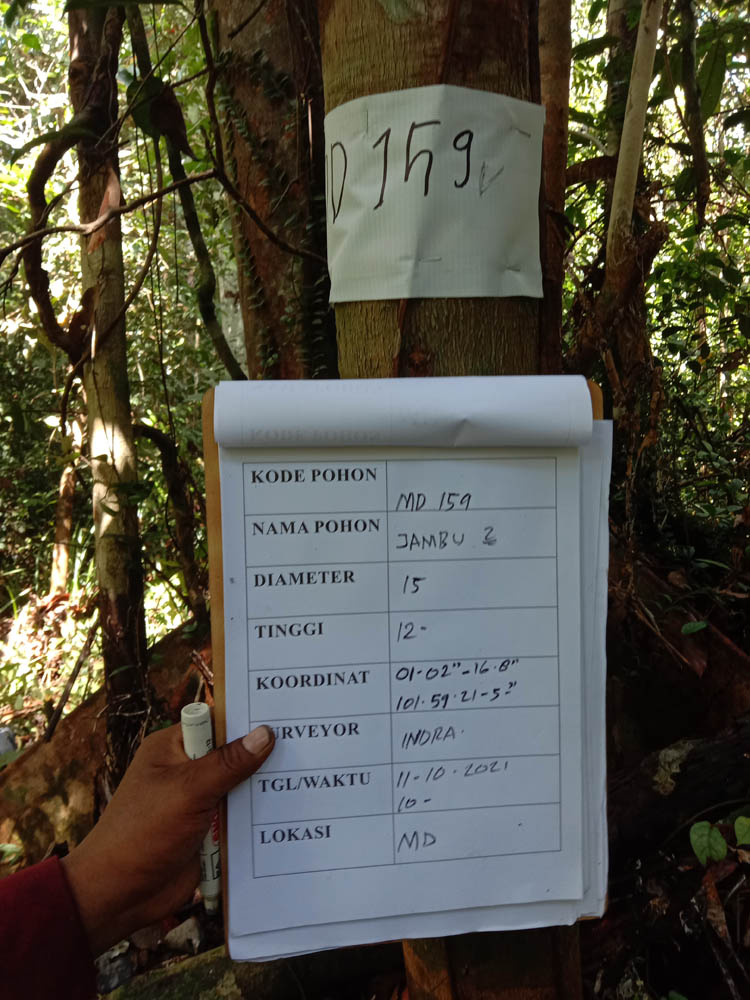 MD 159
KODE POHON MD 159
NAMA POHON JAMBU 2
DIAMETER 15
TINGGI 12-
KOORDINAT 01-02"-16.8"
101.59.21-5-"
SURVEYOR INDRA.
TGL/WAKTU 11-10.2021
10-
LOKASI MD